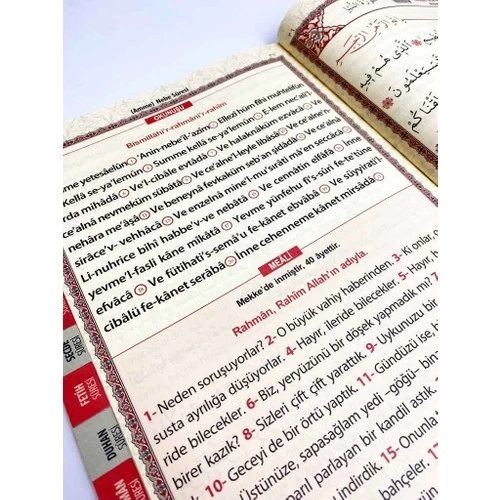 (Amme) Nebe Sûresi
OKUNUŞU
Bismillâhi'r-rahmâni'r-rahîm
mme yetesâelûn 1 Anin-nebe'il-'azîm 2 Ellezî hüm fîhi muhtelifûn
Kellâ se-ya'lemûn 4 Summe kellâ se-ya'lemûn 5 E.lem nec'ali'l-
arda mihâdâ 6 Ve'l-cibâle evtâdâ 7 Ve halaknâküm ezvâcâ Ve
ce'alnâ nevmeküm sübâtâ 9 Ve ce'alne'l-leyle libâsâ Ve ce'alne'n-
nehâra me'âşâ 11 Ve beneynâ fevkaküm seb'an şidâdâ Ve ce'alnâ
sirâce'v- vehhâcâ 13 Ve enzelnâ mine'l-mu'sırâti mâ'en seccâcâ
Li-nuhrice bihî habbe'v-ve nebâtâ Ve cennâtin elfâfâ İnne
yevme'l-fasli kâne mikâtâ Yevme yünfehu fi's-sûri fe-te'tûne
efvâcâ Ve fütihati's-semâ'u fe-kânet ebvâbâ Ve süyyirati'l-
cibâlü fe-kânet serâbâ İnne cehenneme kânet mirsâdâ
MEALİ
Mekke'de inmiştir, 40 âyettir.
Rahmân, Rahîm Allah'ın adıyla.
1- Neden soruşuyorlar? 2- O büyük vahiy haberinden. 3- Ki onlar,
susta ayrılığa düşüyorlar. 4- Hayır, ileride bilecekler. 5- Hayır,
ride bilecekler. 6- Biz, yeryüzünü bir döşek yapmadık mı?
birer kazık? 8- Sizleri çift çift yarattık. 9- Uykunuzu bir
10- Geceyi de bir örtü yaptık. 11- Gündüzü ise,
Üstünüze, sapasağlam yedi –göğü– bina
parıl parlayan bir kandil astık.
indirdik. 15- Onunla
bahçeler. 17-
SECDE SÛRESİ
FETİH SÛRESİ
DUHAN SÛRESİ